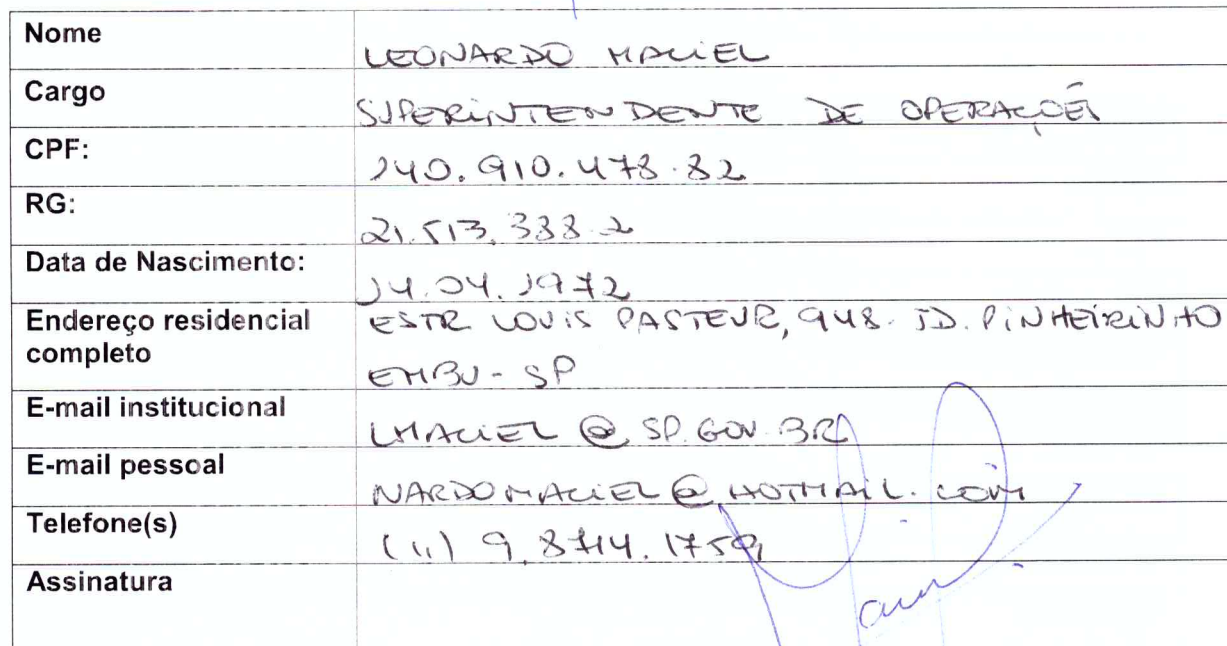 Nome LEONARDO MACIEL
Cargo SUPERINTENDENTE DE OPERAÇÕES
CPF: 140.910.478.82
RG: 21.513.338.2
Data de Nascimento: 14.04.1972
Endereço residencial ESTR LOUIS PASTEUR, 948. JD. PINHEIRINHO
completo EMBU - SP
E-mail institucional LMACIEL @ SP.GOV.BR
E-mail pessoal NARDOMACIEL @ HOTMAIL.COM
Telefone(s) (11) 9.8714.1759
Assinatura